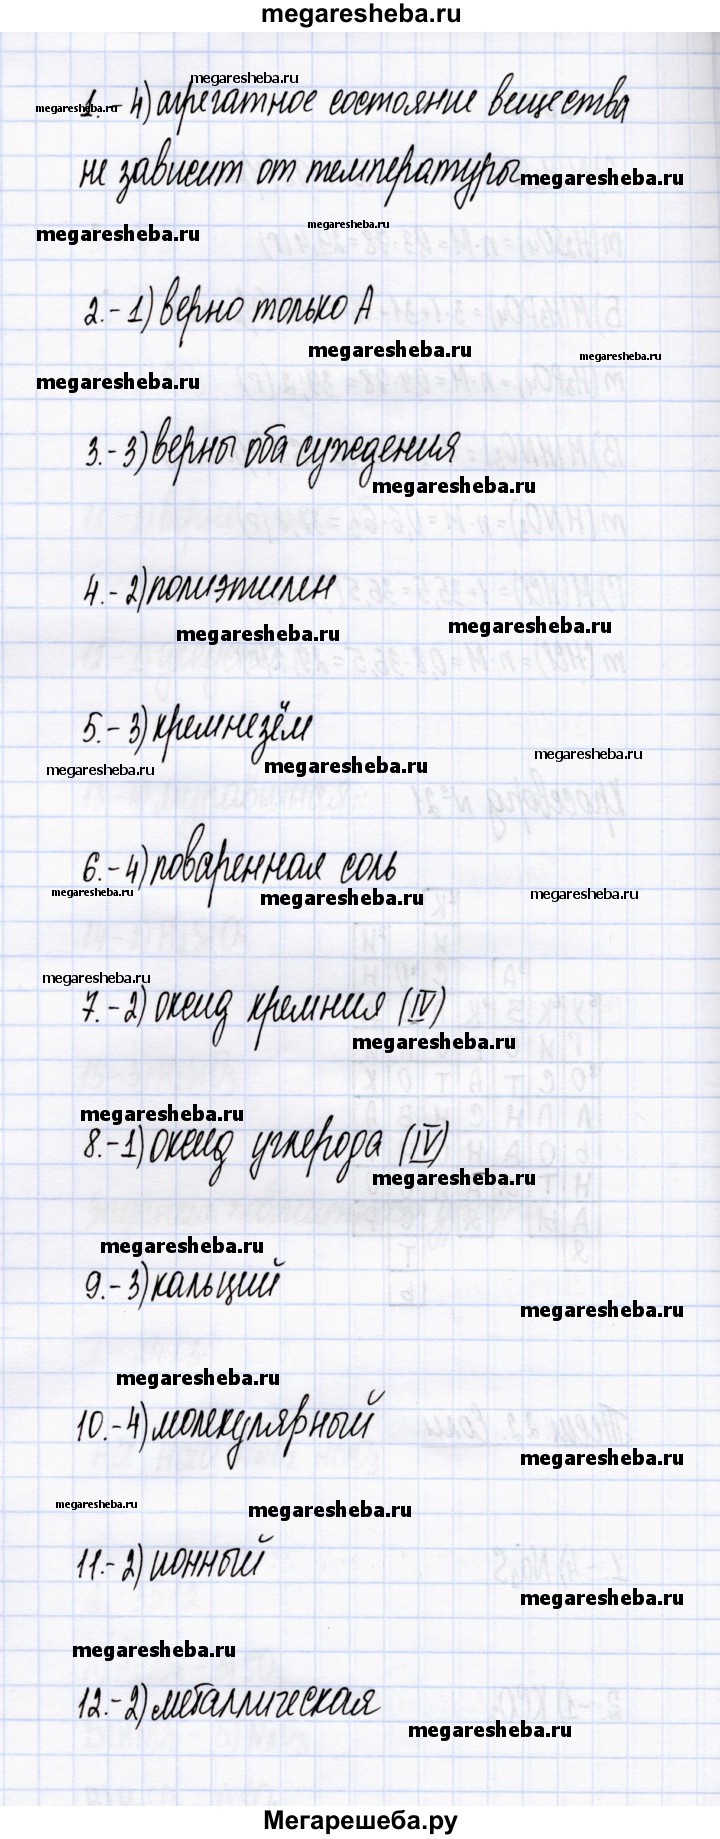 megaresheba.ru
megaresheba.ru
megaresheba.ru
1.-4) агрегатное состояние вещества
не зависит от температуры
megaresheba.ru
megaresheba.ru
megaresheba.ru
2.-1) верно только А
megaresheba.ru
megaresheba.ru
megaresheba.ru
3.-3) верны оба суждения
megaresheba.ru
4.-2) полиэтилен
megaresheba.ru
megaresheba.ru
5.-3) кремнезём
megaresheba.ru
megaresheba.ru
megaresheba.ru
6.-4) поваренная соль
megaresheba.ru
megaresheba.ru
megaresheba.ru
megaresheba.ru
7.-2) оксид кремния (IV)
megaresheba.ru
megaresheba.ru
8.-1) оксид углерода (IV)
megaresheba.ru
megaresheba.ru
9.-3) кальций
megaresheba.ru
megaresheba.ru
10.-4) молекулярный
megaresheba.ru
megaresheba.ru
megaresheba.ru
11.-2) ионный
megaresheba.ru
megaresheba.ru
12.-2) металлическая
megaresheba.ru
Мегарешеба.ру